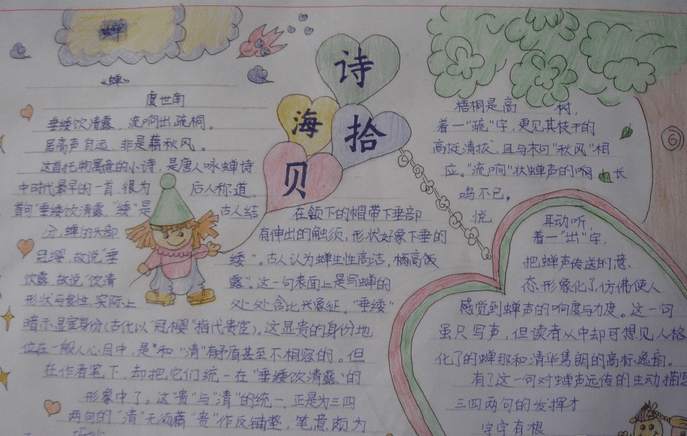 蝉
诗
海 拾
贝
《蝉》
虞世南
垂緌饮清露，流响出疏桐。
居高声自远，非是藉秋风。
这首托物寓意的小诗，是唐人咏蝉诗
中时代最早的一首，很为 后人称道
首句"垂緌饮清露，"緌"是 古人结
在颔下的帽带下垂部
分，蝉的头部 有伸出的触须，形状好象下垂的
，故说"垂 緌"。古人认为蝉生性高洁，栖高饮
饮露，故说"饮清 露"。这一句表面上是写蝉的
形状与食性，实际上 处处含比兴象征，"垂緌"
暗示显宦身份(古代以"冠缨"指代贵宦)。这显贵的身份地
位在一般人心目中，是"和"清"有矛盾甚至不相容的。但
在作者笔下，却把它们统一在"垂緌饮清露"的
形象中了。这"贵"与"清"的统一，正是为三四
两句的"清"无须藉"贵"作反铺垫，笔意颇为
梧桐是高 树，
着一"疏"字，更见其枝干的
高挺清拔，且与末句"秋风"相
应。"流响"状蝉声的 长
鸣不已，
悦 耳动听，
着一"出"字，
把蝉声传送的意
态形象化了，仿佛使人
感觉到蝉声的响度与力度。这一句
虽只写声，但读者从中却可想见人格
化了的蝉那和清华隽朗的高标逸韵。
有了这一句对蝉声远传的生动描
三四两句的发挥才
字字有根